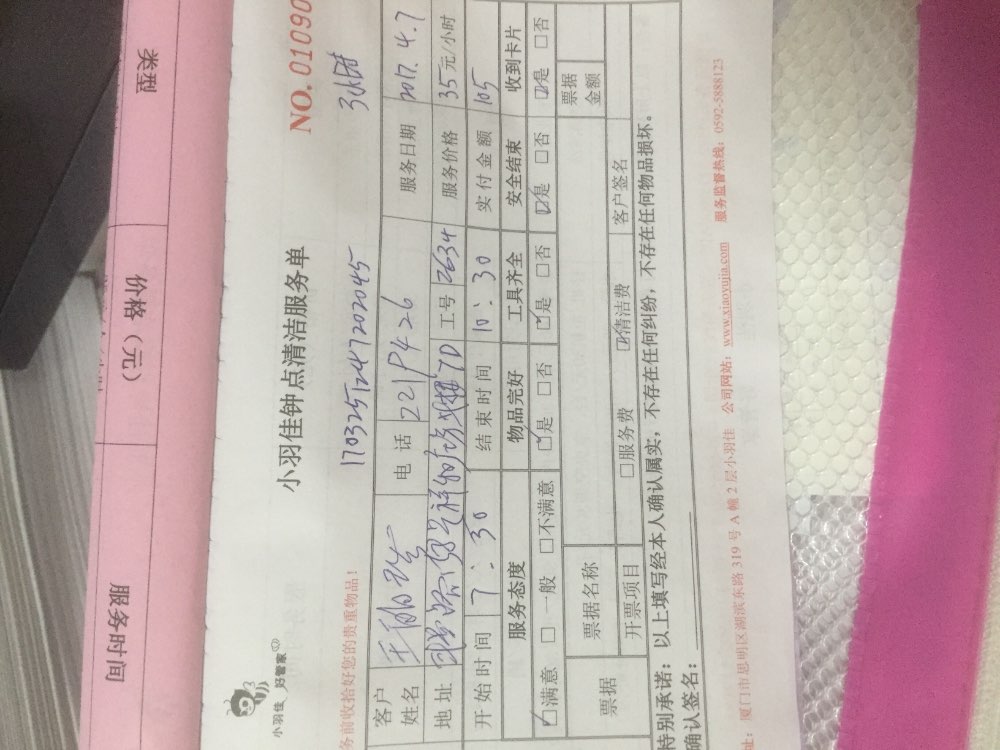 类型
价格（元）
服务时间
小羽佳 好管家
小羽佳钟点清洁服务单
NO. 01090
1703251247202045
3小时
务前收拾好您的贵重物品！
客户姓名
电话 221P426
服务日期 2017.4.7
地址
7D 工号 2634 服务价格 35元/小时
开始时间 7:30 结束时间 10:30 实付金额 105
服务态度 物品完好 工具齐全 安全结束 收到卡片
☑满意 □一般 □不满意 ☑是 □否 ☑是 □否 ☑是 □否 ☑是 □否
票据 票据名称 票据金额
开票项目 □服务费 ☑清洁费 客户签名
特别承诺：以上填写经本人确认属实，不存在任何纠纷，不存在任何物品损坏。
确认签名：
址：厦门市思明区湖滨东路 319 号 A 幢 2 层小羽佳 公司网站：www.xiaoyujia.com 服务监督热线：0592-5888123